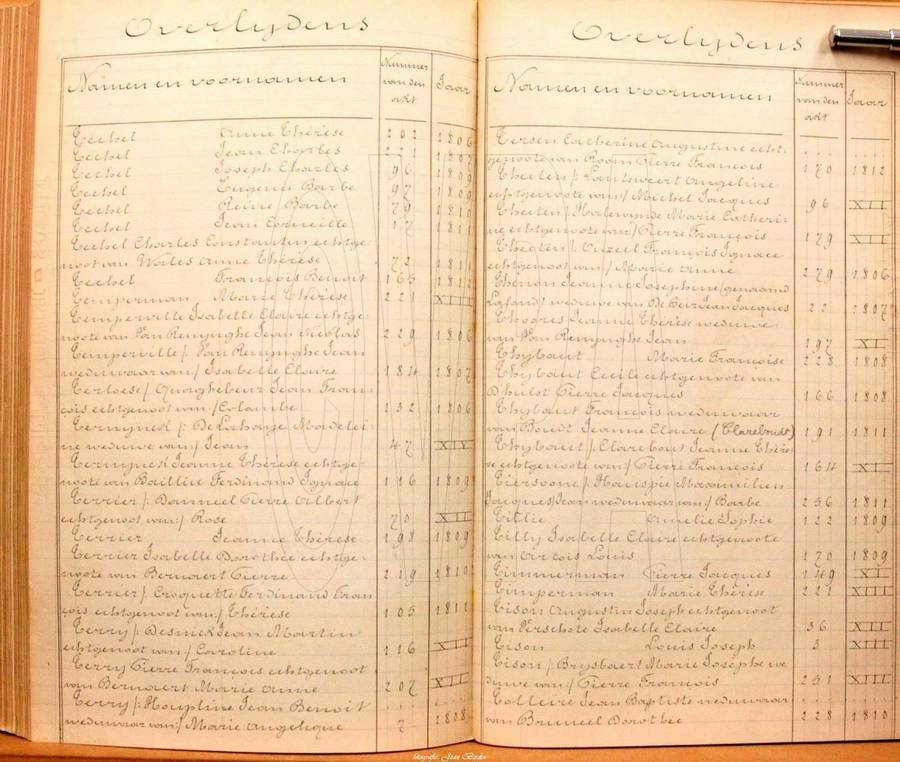 Overlydens
Namen en voornamen Nummer van den akt Jaar
Techel Anne Thérèse 202 1806
Techel Jean Charles 221 1807
Techel Joseph Charles 96 1809
Techel Eugenie Barbe 97 1809
Techel Reine Barbe 79 1810
Techel Jean Corneille 17 1811
Techel Charles Constantin echtge-
noot van Wailes Anne Thérèse 72 1811
Techel François Benoit 165 1812
Temperman Marie Thérèse 221 XIII
Temperville Isabelle Claire echtge-
noote van Van Renynghe Jean Nicolas 229 1806
Temperville /: Van Renynghe Jean
weduwaar van:/ Isabelle Claire 184 1807
Terloese / Quaghebeur Jean Fran-
çois echtgenoot van:/ Colombe 132 1806
Termynck /: De Lahaye Madelei-
ne weduwe van:/ Jean 47 XIV
Termynck Jeanne Thérèse echtge-
noote van Baillie Ferdinand Ignace 116 1809
Terrier /: Danneel Pierre Albert
echtgenoot van:/ Rose 70 XII
Terrier Jeanne Thérèse 198 1809
Terrier Isabelle Dorothée echtge-
noote van Bernaert Pierre 219 1810
Terrier /: Croquette Ferdinand Fran-
çois echtgenoot van:/ Thérèse 105 1811
Terry /: Desmek Jean Martin
echtgenoot van:/ Caroline 116 XIII
Terry Pierre François echtgenoot
van Bernaert Marie Anne 207 XII
Terry /: Houpline Jean Benoit
weduwaar van:/ Marie Angelique 7 1808
Overlydens
Namen en voornamen Nummer van den akt Jaar
Tersen Catherine Augustine echt-
genoote van Pierre François 170 1812
Theeten /: Lantsweert Angeline
echtgenoote van:/ Michel Jacques 96 XII
Theeten /: Halewynde Marie Catheri-
ne echtgenoote van:/ Pierre François 179 XII
Theeten /: Ouzeel François Ignace
echtgenoot van:/ Marie Anne 279 1806
Thenon Jeanne Josephine /genaamd
Lafond/ weduwe van De Beir Jean Jacques 22 1807
Thoores Jeanne Thérèse weduwe
van Van Renynghe Jean 197 XI
Thybaut Marie Françoise 228 1808
Thybaut Cecile echtgenoote van
Dhulst Pierre Jacques 166 1808
Thybaut François weduwaar
van Boudt Jeanne Claire (Clareboudt) 191 1811
Thybaut /: Clarebout Jeanne Thérè-
se echtgenoote van:/ Pierre François 164 XI
Tiersoone /: Hauspie Maximilien
Jacques Jean weduwaar van:/ Barbe 236 1811
Titlie Amelie Sophie 122 1809
Tilly Isabelle Claire echtgenoote
van Artois Louis 170 1809
Timmerman Pierre Jacques 149 XI
Timperman Marie Thérèse 221 XIII
Tison Augustin Joseph echtgenoot
van Verschote Isabelle Claire 36 XII
Tison Louis Joseph 3 XIII
Tison /: Brysbaert Marie Josèphe we-
duwe van:/ Pierre François 231 XIII
Tolleve Jean Baptiste weduwaar
van Bruneel Dorothée 228 1810